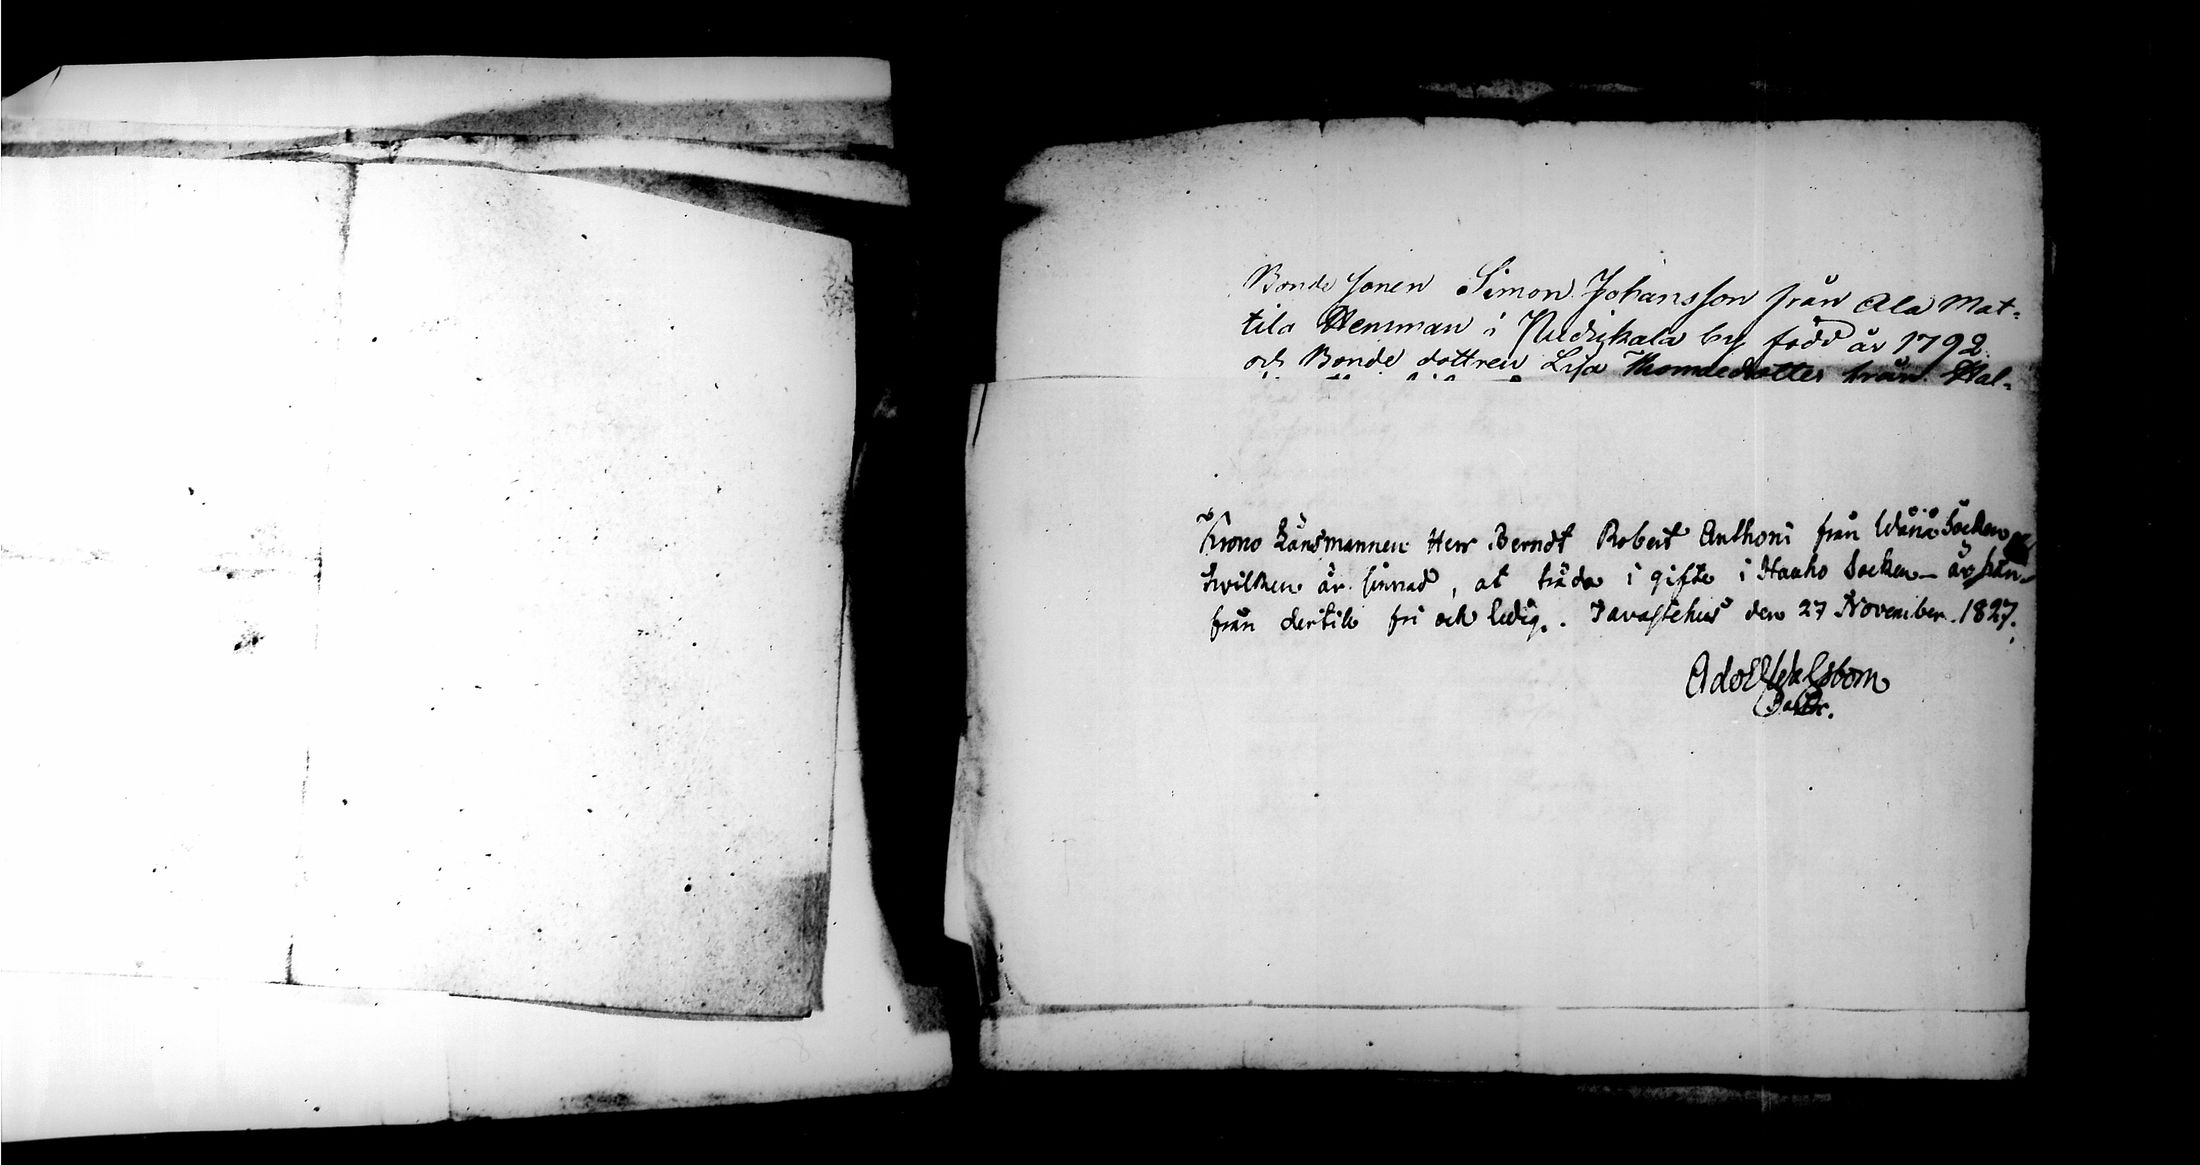 Bonde sonen Simon Johansson från Ala Mat-
tila Hemman i by född år 1792
och Bonde dottren Lisa Thomaedotter från Hal-
Krono Länsmannen Herr Berndt Robert Anthoni från Wånå Socken
hvilken är sinnad, at träda i gifte i Hauho Socken är
från dertill fri och ledig. Tavastehus den 27 November 1827.
Adolf